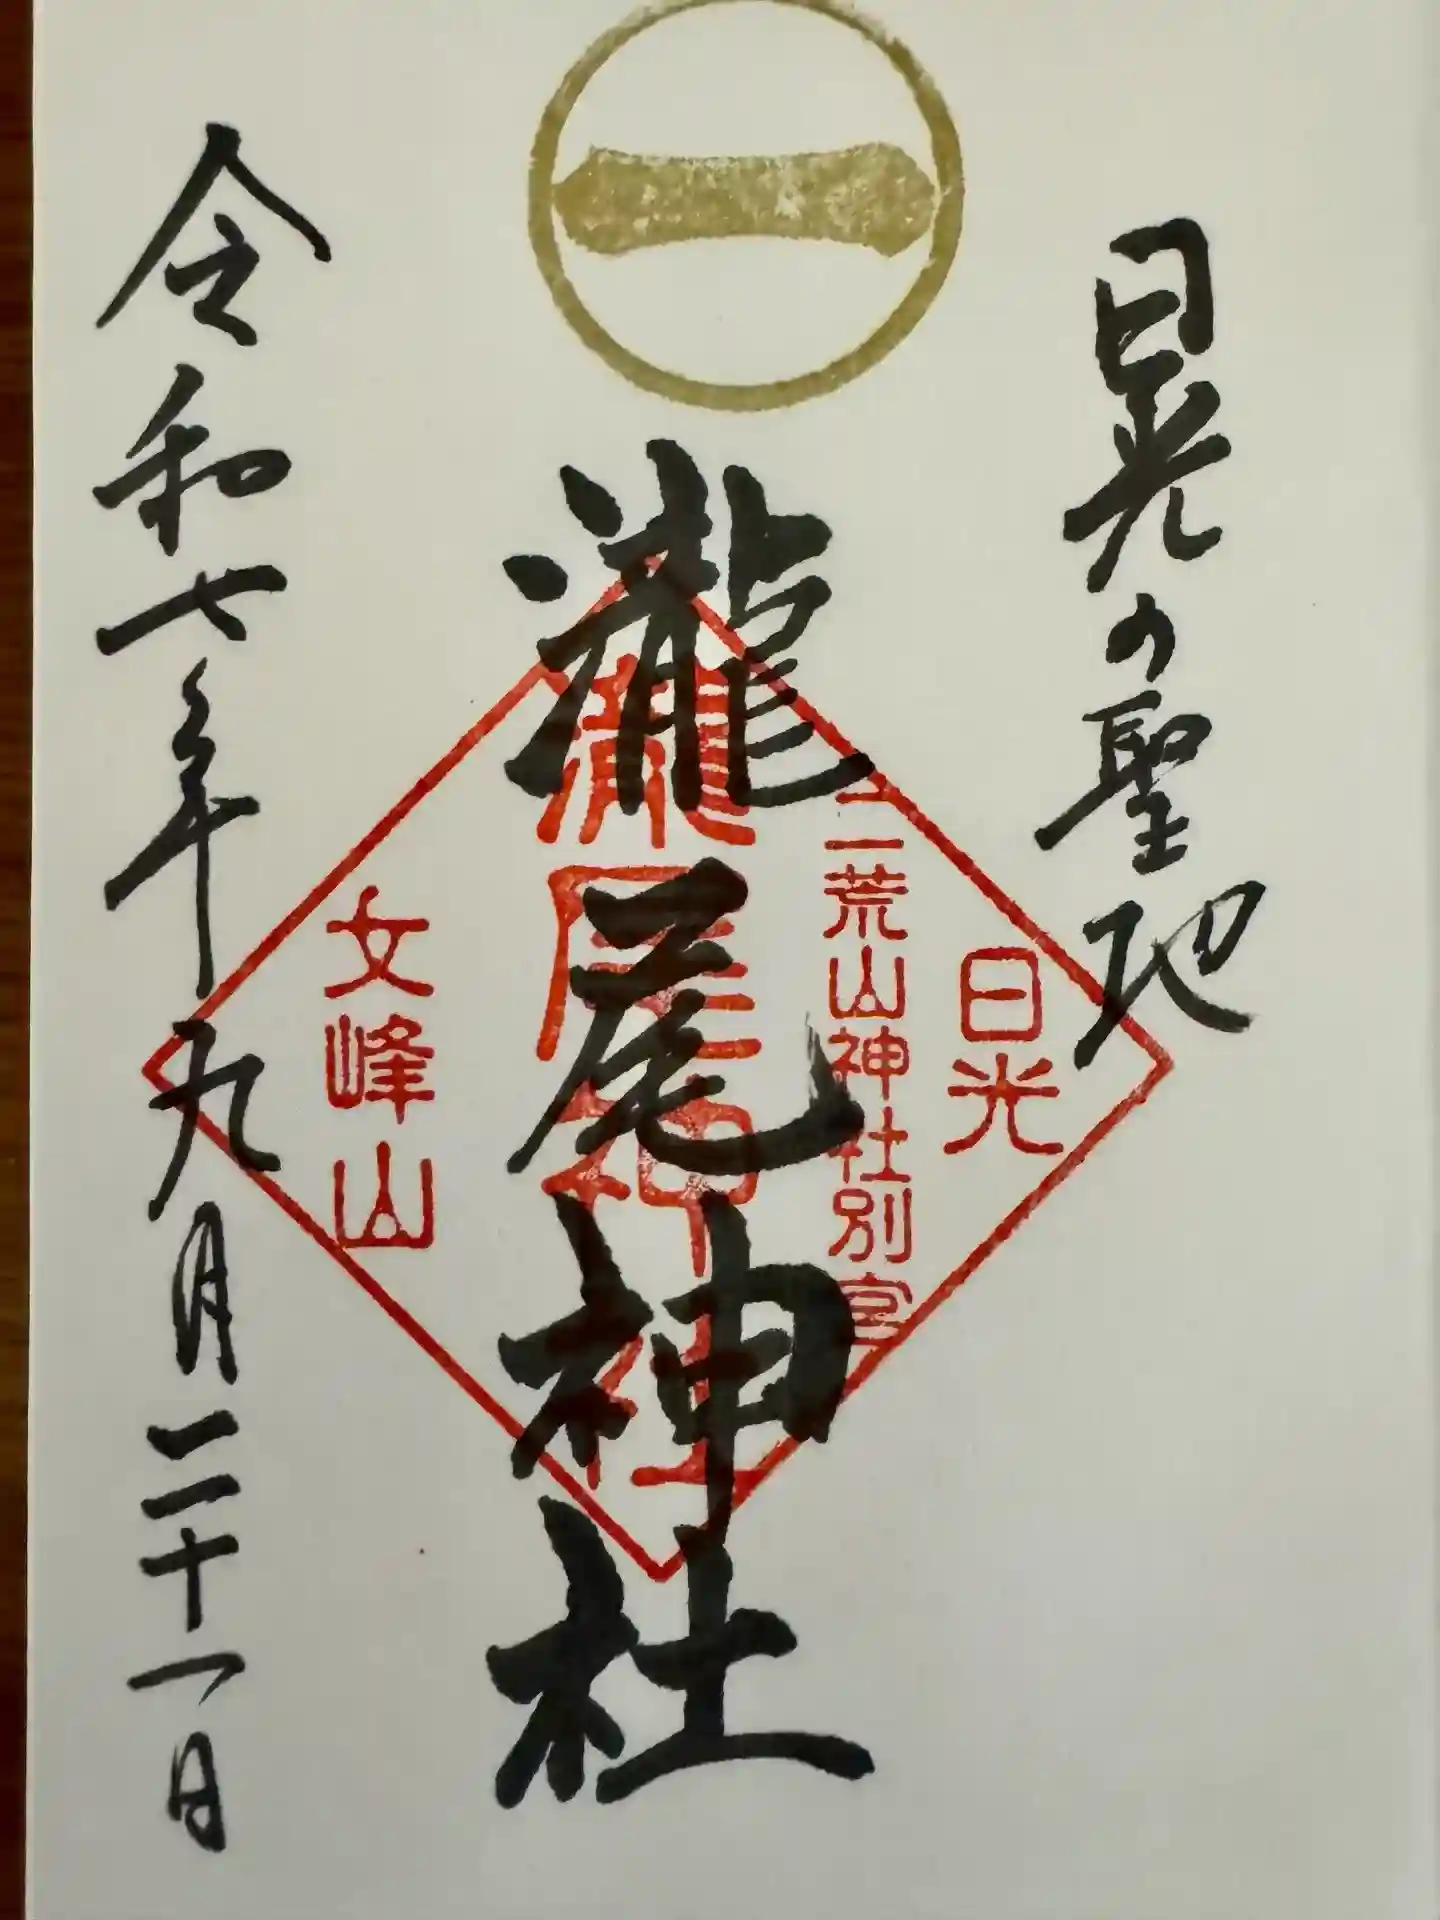 一
日光の聖地
瀧尾神社
令和七年九月二十一日
日光
二荒山神社別宮
瀧尾神社
女峰山